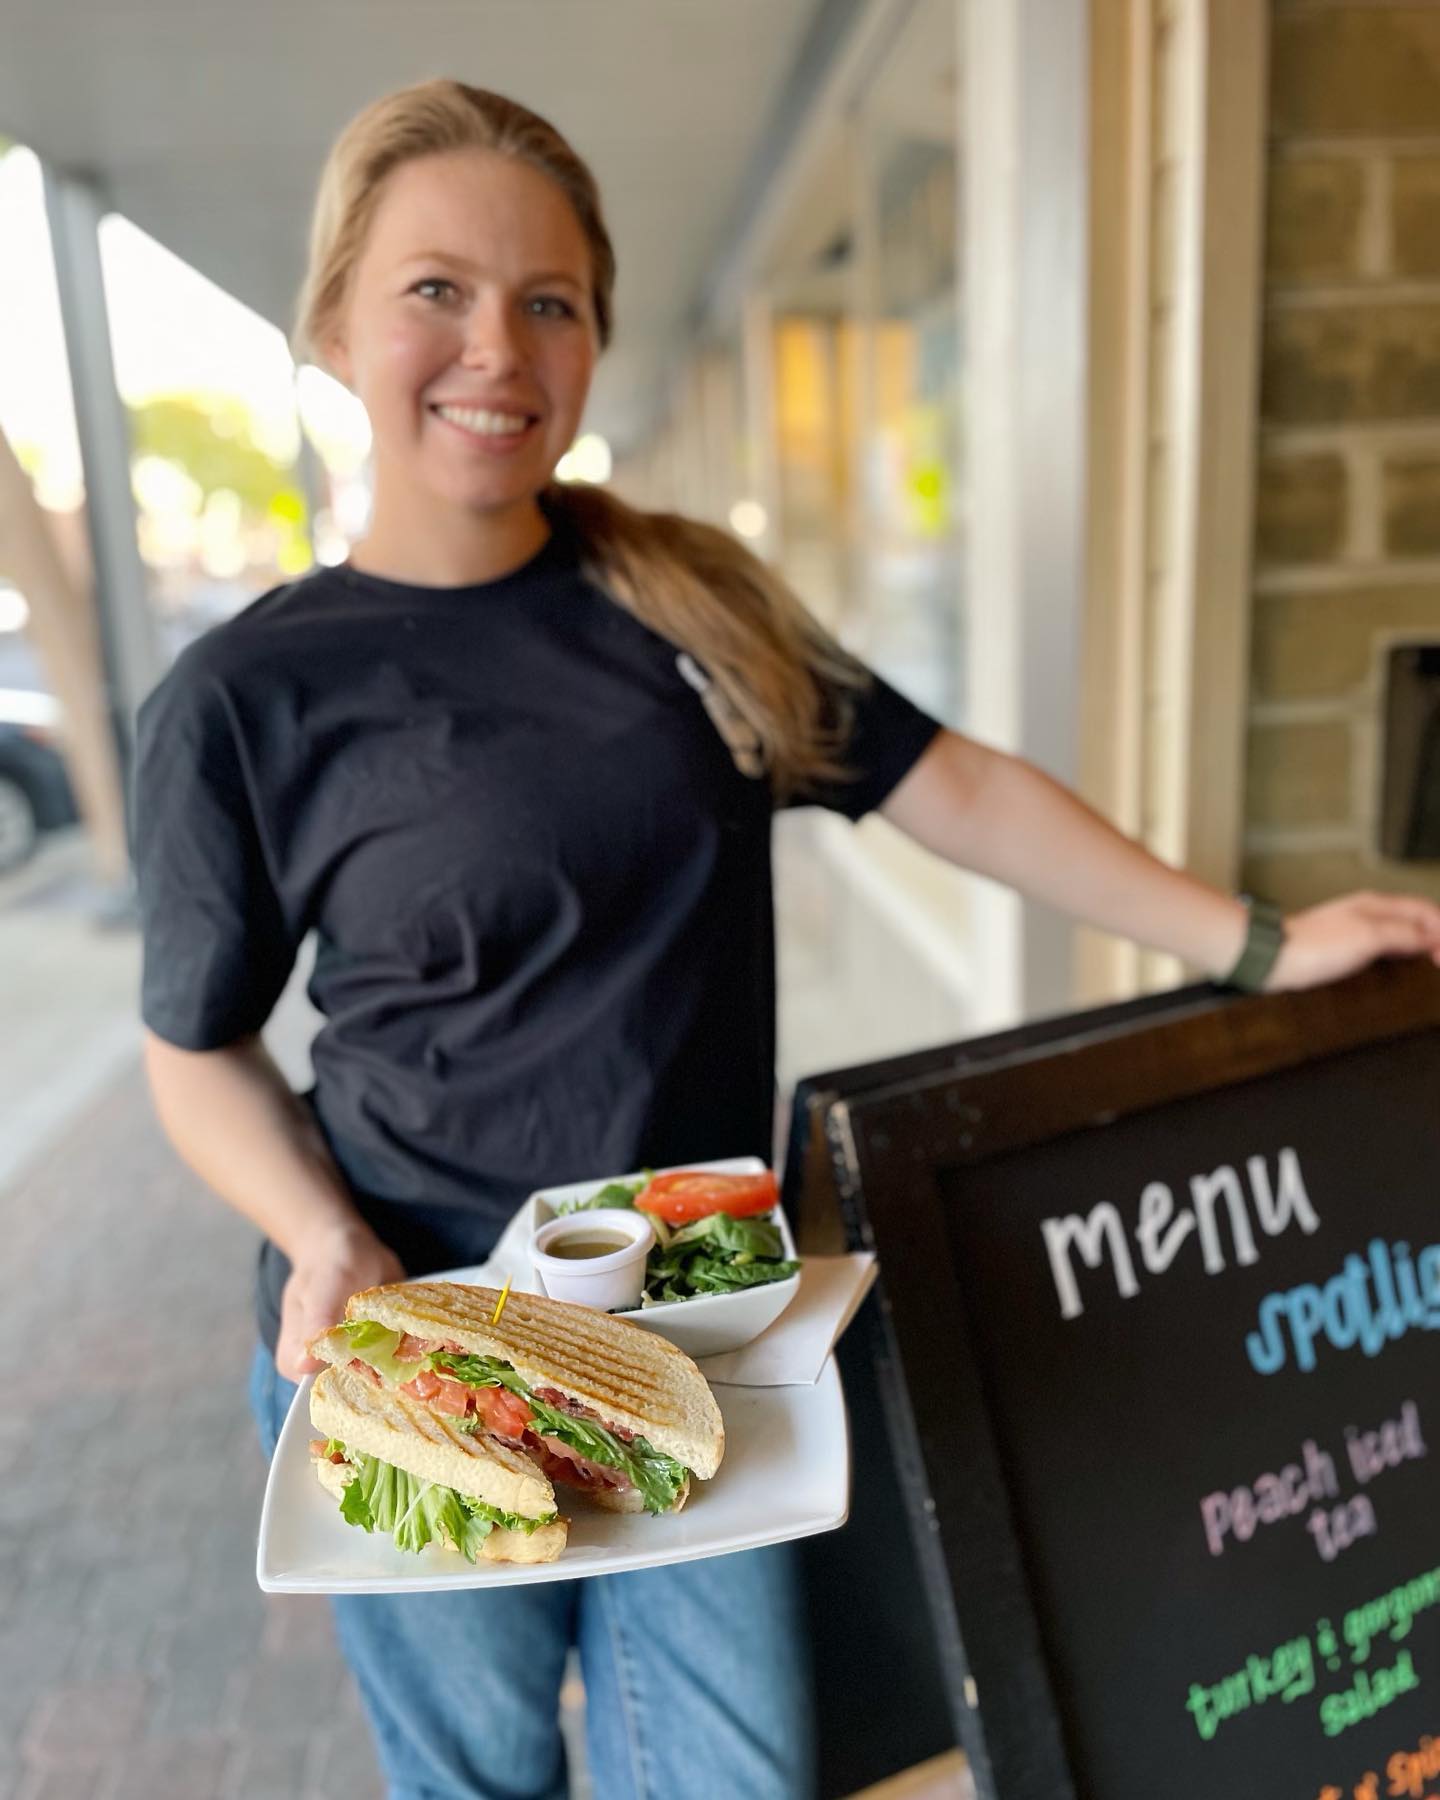 menu
spotlig
peach iced
tea
turkey & gorgon
salad
n' spin